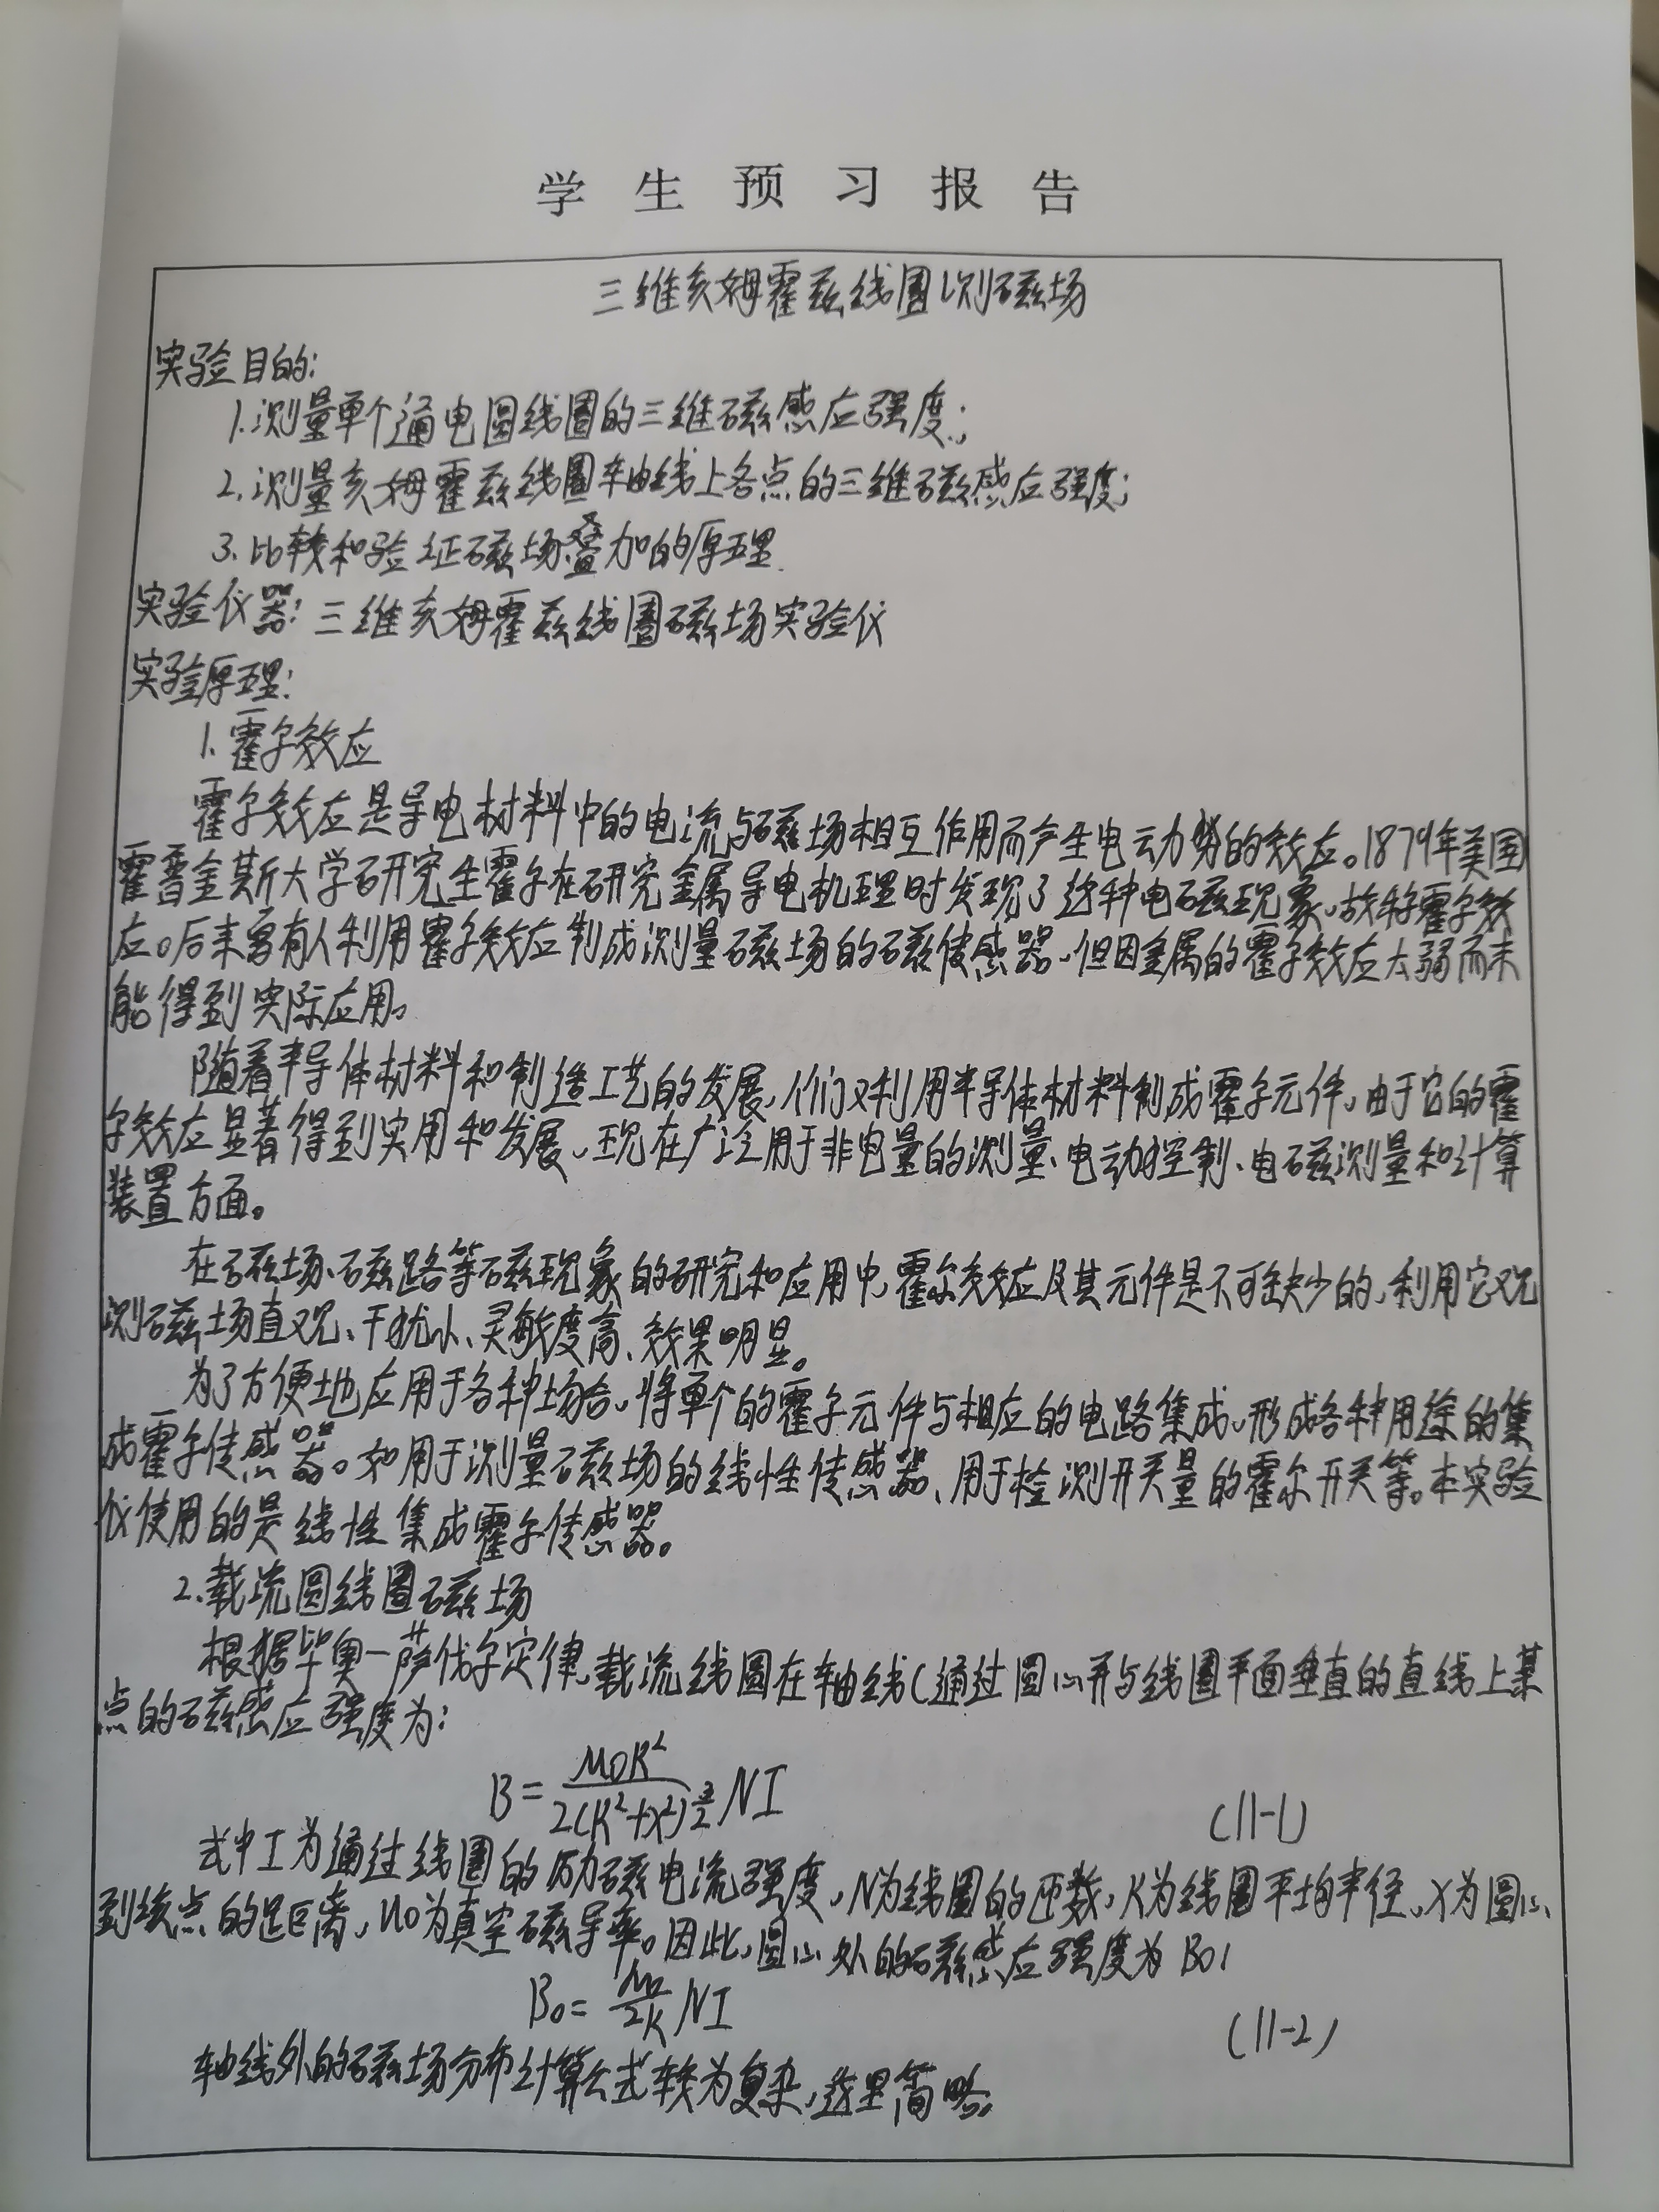 学生预习报告
三维亥姆霍兹线圈测磁场
实验目的:
1.测量单个通电圆线圈的三维磁感应强度;
2.测量亥姆霍兹线圈轴线上各点的三维磁感应强度;
3.比较和验证磁场叠加的原理.
实验仪器:三维亥姆霍兹线圈磁场实验仪
实验原理:
1.霍尔效应
霍尔效应是导电材料中的电流与磁场相互作用而产生电动势的效应。1879年美国
霍普金斯大学研究生霍尔在研究金属导电机理时发现了这种电磁现象,故称霍尔效
应。后来曾有人利用霍尔效应制成测量磁场的磁传感器,但因金属的霍尔效应太弱而未
能得到实际应用。
随着半导体材料和制造工艺的发展,人们又利用半导体材料制成霍尔元件,由于它的霍
尔效应显著得到实用和发展,现在广泛用于非电量的测量、电动控制、电磁测量和计算
装置方面。
在磁场、磁路等磁现象的研究和应用中,霍尔效应及其元件是不可缺少的,利用它观
测磁场直观、干扰小、灵敏度高、效果明显。
为了方便地应用于各种场合,将单个的霍尔元件与相应的电路集成,形成各种用途的集
成霍尔传感器。如用于测量磁场的线性传感器、用于检测开关量的霍尔开关等。本实验
仪使用的是线性集成霍尔传感器。
2.载流圆线圈磁场
根据毕奥一萨伐尔定律,载流线圈在轴线(通过圆心并与线圈平面垂直的直线上某
点的磁感应强度为:
B=\frac{μ0R^2}{2(R^2+x^2)^{\frac{3}{2}}}NI (11-1)
式中I为通过线圈的励磁电流强度,N为线圈的匝数,R为线圈平均半径,x为圆心
到该点的距离,μ0为真空磁导率。因此,圆心处的磁感应强度为B0:
B0=\frac{μ0}{2R}NI (11-2)
轴线外的磁场分布计算公式较为复杂,这里简略。